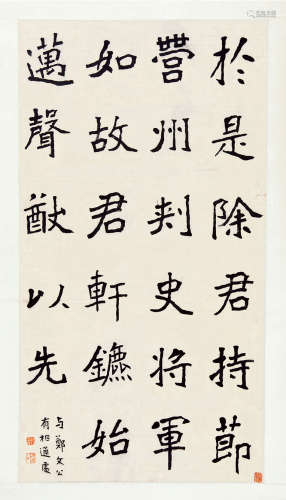 於是除君持節
營州刺史將軍
如故君軒鑣始
邁聲猷以先
与鄭文公
有相通處